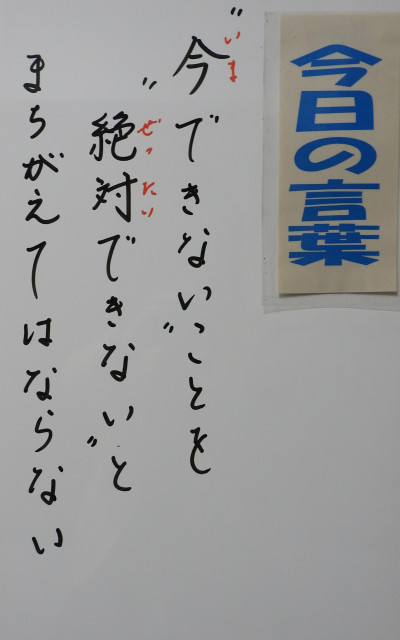 今日の言葉
〝今できない〟ことを
いま
〝絶対できない〟と
ぜったい
まちがえてはならない